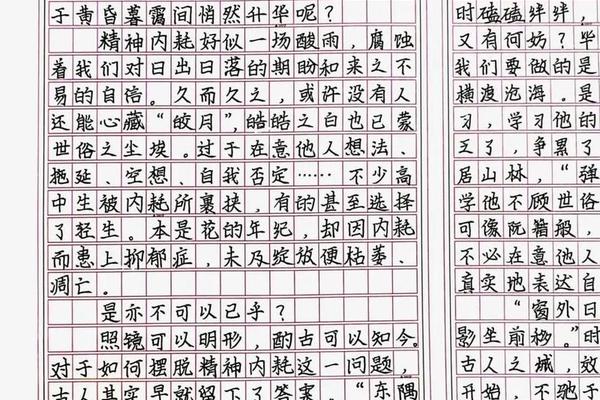 于黄昏暮霭间悄然升华呢？
精神内耗好似一场酸雨，腐蚀
着我们对日出日落的期盼和来之不
易的自信。久而久之，或许没有人
还能心藏“皎月”，皓皓之白也已蒙
世俗之尘埃。过于在意他人想法、
拖延、空想、自我否定……不少高
中生被内耗所裹挟，有的甚至选择
了轻生。本是花的年纪，却因内耗
而患上抑郁症，未及绽放便枯萎、
凋亡。
是亦不可以已乎？
照镜可以明形，酌古可以知今。
对于如何摆脱精神内耗这一问题，
古人其实早就留下了答案。“东隅
时磕磕绊绊，
又有何妨？毕
我们要做的是
横渡沧海。是
习，学习他的
王了，争累了
居山林，“弹
学他不顾世俗
可像阮籍般，
不必在意他人
真实地表达自
“窗外日
影坐前移。”时
古人之城，效
开始，不驰于